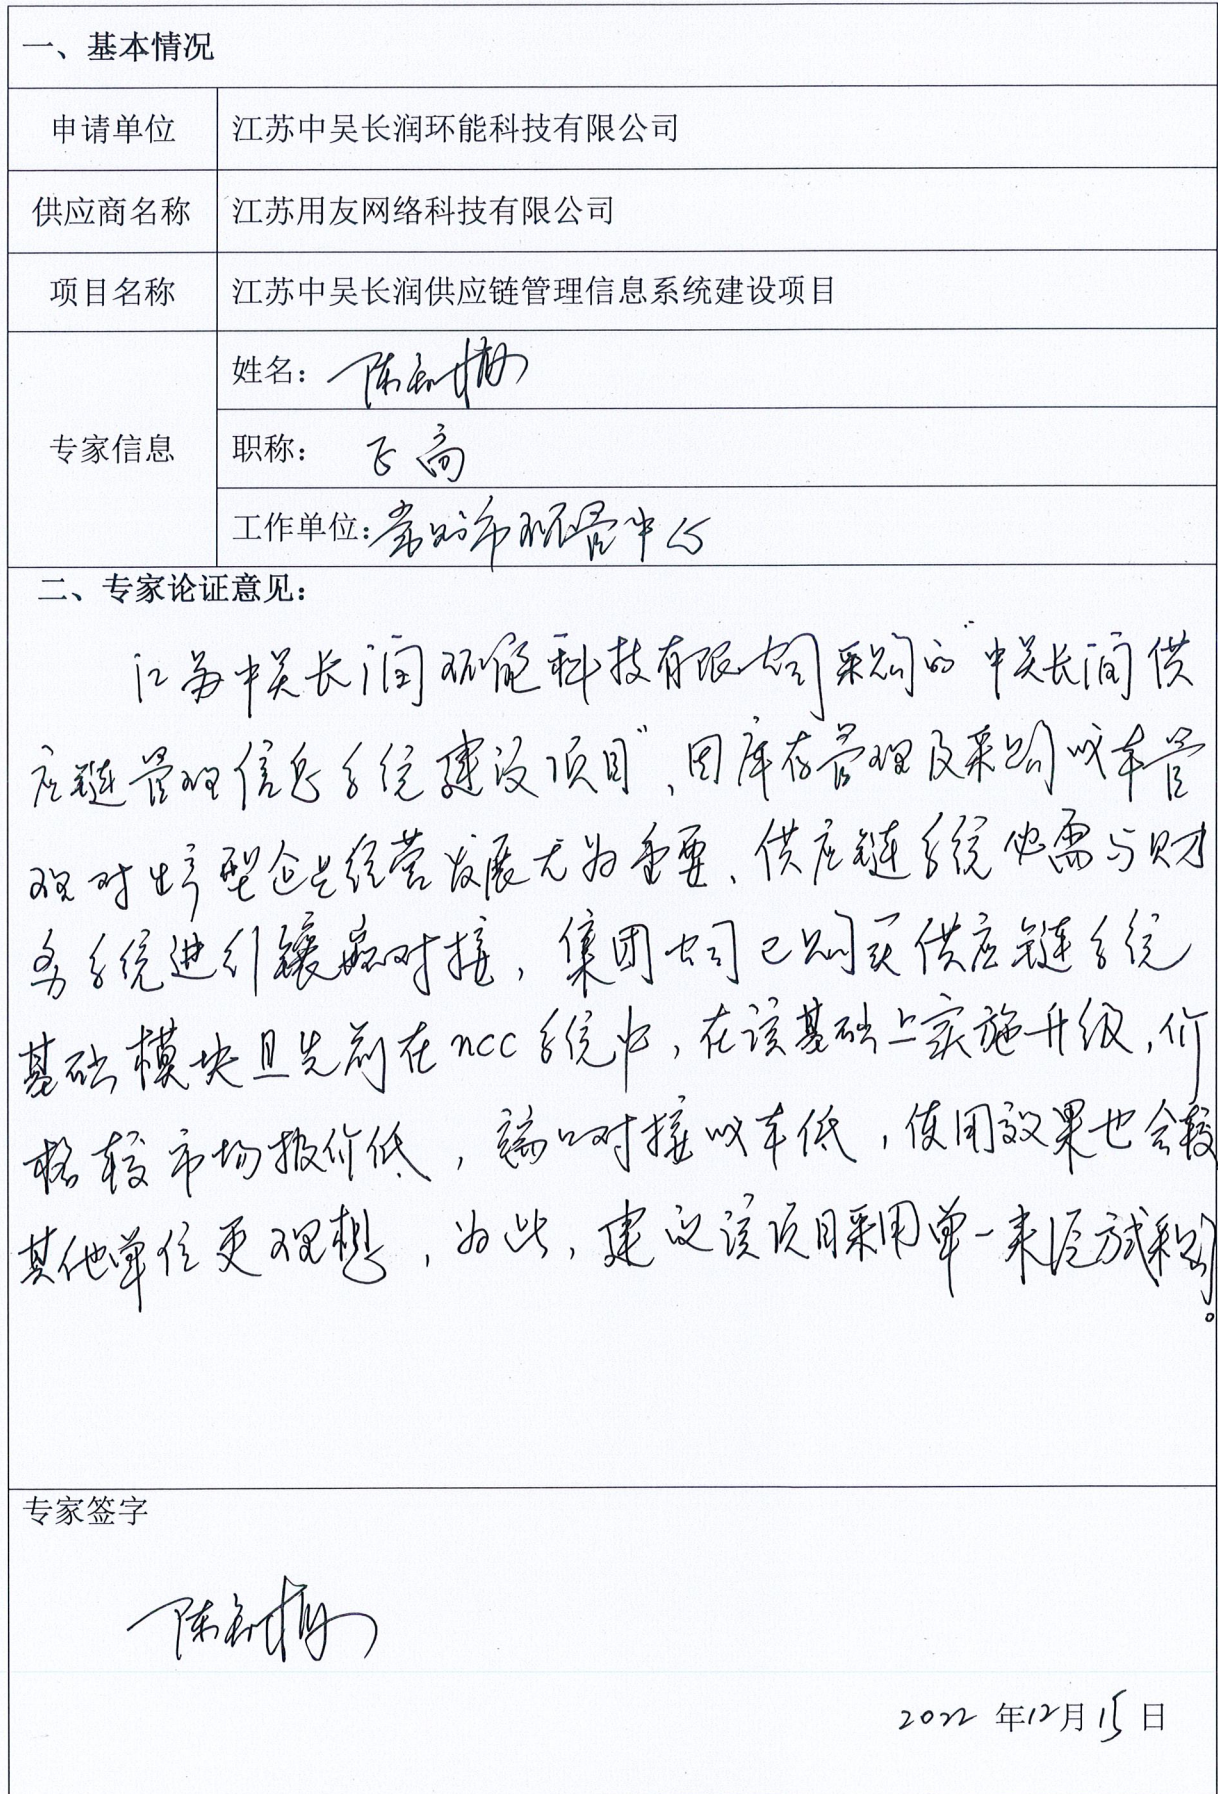 一、基本情况
申请单位 江苏中吴长润环能科技有限公司
供应商名称 江苏用友网络科技有限公司
项目名称 江苏中吴长润供应链管理信息系统建设项目
专家信息
姓名：陈
职称：正高
工作单位：常州市环管中心
二、专家论证意见：
江苏中吴长润环能科技有限公司采购的“中吴长润供
应链管理信息系统建设项目”，因库存管理及采购成本管
理对生产型企业经营发展尤为重要、供应链系统必需与财
务系统进行镶嵌对接，集团公司已购买供应链系统
基础模块且先前在ncc系统中，在该基础上实施升级，价
格较市场报价低，端口对接成本低，使用效果也会较
其他单位更理想，为此，建议该项目采用单一来源方式采购。
专家签字
陈
2022 年12月15日